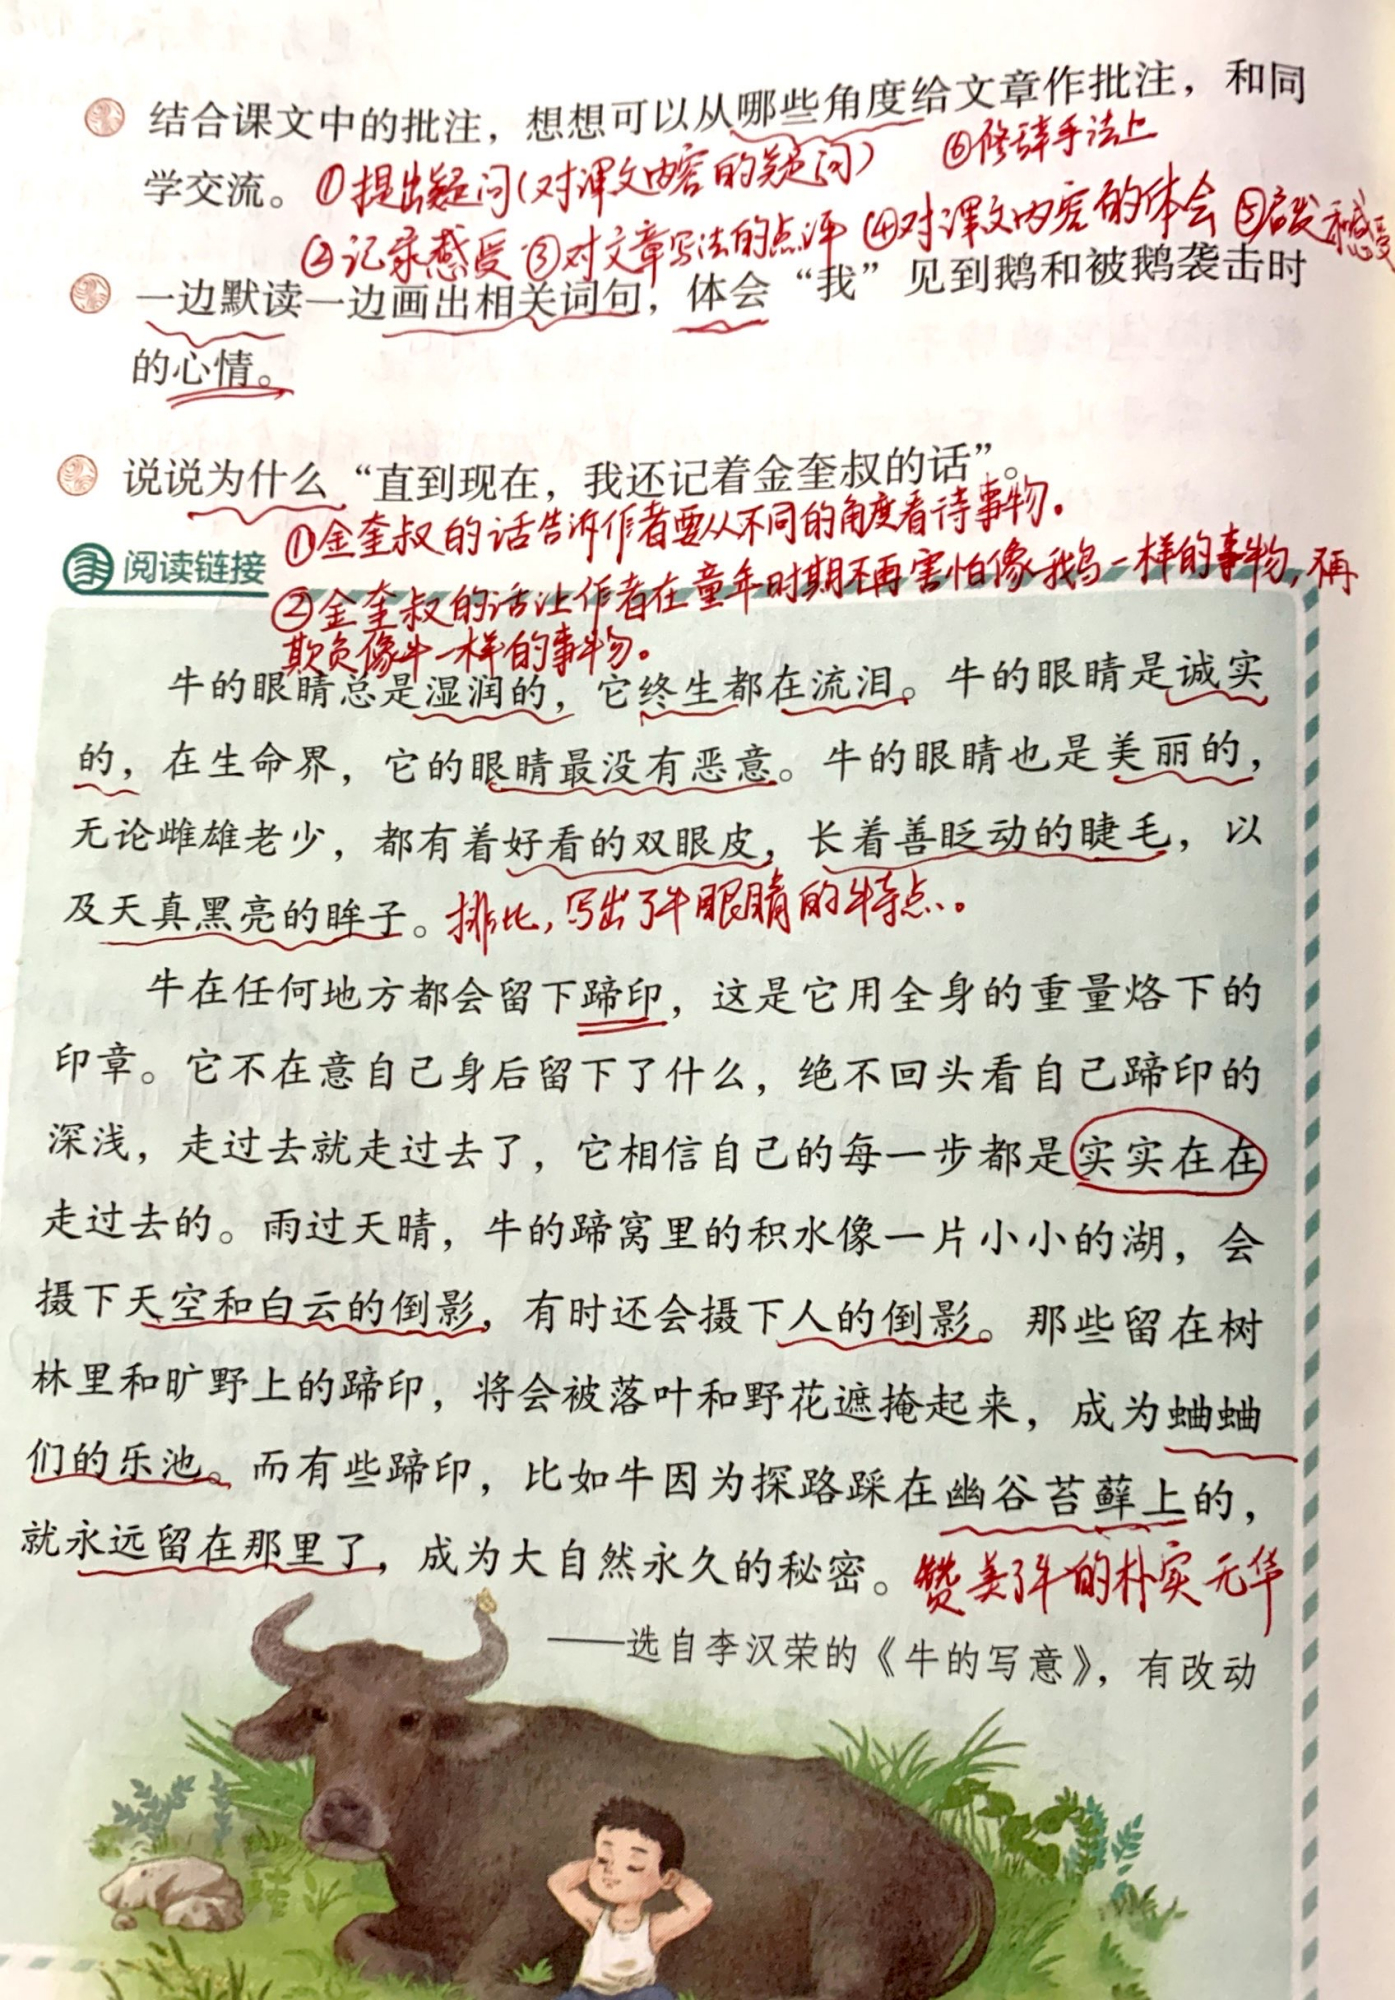 结合课文中的批注，想想可以从哪些角度给文章作批注，和同
⑥修辞手法上
学交流。①提出疑问（对课文内容的疑问）
②记录感受③对文章写法的点评④对课文内容的体会⑤启发和感受
一边默读一边画出相关词句，体会“我”见到鹅和被鹅袭击时
的心情。
说说为什么“直到现在，我还记着金奎叔的话”。
①金奎叔的话告诉作者要从不同的角度看待事物。
阅读链接
②金奎叔的话让作者在童年时期不再害怕像鹅一样的事物，不再
欺负像牛一样的事物。
牛的眼睛总是湿润的，它终生都在流泪。牛的眼睛是诚实
的，在生命界，它的眼睛最没有恶意。牛的眼睛也是美丽的，
无论雌雄老少，都有着好看的双眼皮，长着善眨动的睫毛，以
及天真黑亮的眸子。排比，写出了牛眼睛的特点。
牛在任何地方都会留下蹄印，这是它用全身的重量烙下的
印章。它不在意自己身后留下了什么，绝不回头看自己蹄印的
深浅，走过去就走过去了，它相信自己的每一步都是实实在在
走过去的。雨过天晴，牛的蹄窝里的积水像一片小小的湖，会
摄下天空和白云的倒影，有时还会摄下人的倒影。那些留在树
林里和旷野上的蹄印，将会被落叶和野花遮掩起来，成为蛐蛐
们的乐池。而有些蹄印，比如牛因为探路踩在幽谷苔藓上的，
就永远留在那里了，成为大自然永久的秘密。赞美了牛的朴实无华
——选自李汉荣的《牛的写意》，有改动